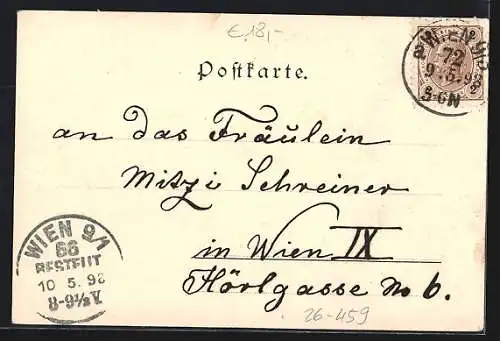 € 18,-
WIEN 9/3
72
9.5.98
5-6N
Postkarte.
an das Fräulein
Mitzi Schreiner
in Wien IX
Hörlgasse No 6.
WIEN 9/1
66
BESTELLT
10.5.98
8-9½V.
26-459